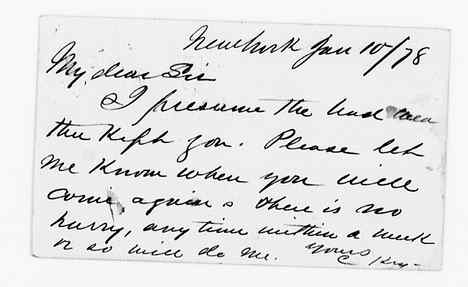 New York Jan 10/78
My dear Sir
I presume the bad
then Kept you. Please let
me know when you will
come again & there is no
hurry, any time within a week
or so will do me. Yours
C